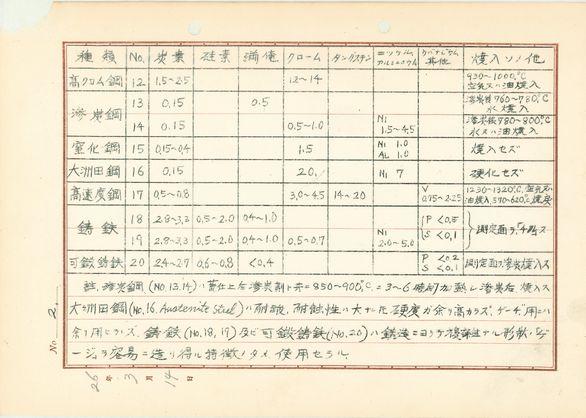 種類 No. 炭素 硅素 満俺 クローム タングステン ニッケル、アルミニウム 其他 焼入ソノ他
高クロム鋼 12 1.5~2.5 12~14 930~1000°C 空気又ハ油焼入
滲炭鋼 13 0.15 0.5 滲炭後 760~780°C 水焼入
14 0.15 0.5~1.0 Ni 1.5~4.5 滲炭後 780~800°C 水又ハ油焼入
窒化鋼 15 0.15~0.4 1.5 Ni 1.0 AL 1.0 焼入セズ
大洲田鋼 16 0.15 20. Ni 7 硬化セズ
高速度鋼 17 0.5~0.8 3.0~4.5 14~20 V 0.75~2.25 1230~1320°C, 油焼入, 570~620°C
鋳鉄 18 2.8~3.3 0.5~2.0 0.4~1.0 P <0.5 S <0.1 測定面ヲ
19 2.8~3.3 0.5~2.0 0.4~1.0 0.5~0.7 Ni 2.0~5.0
可鍛鋳鉄 20 2.4~2.7 0.6~0.8 <0.4 P <0.2 S <0.1 測定面ヲ滲炭焼入ス
註. 滲炭鋼 (No.13.14)ハ 滲炭剤ト共ニ 850~900°Cニ 3~6 時間加熱シ滲炭后 焼入ス
大洲田鋼 (No.16, Austenite Steel)ハ 耐蝕性ハ大ナルモ 硬度ガ余リ高カラズ, ゲーヂ用ニハ
余リ用ヒラズ. 鋳鉄 (No.18,19) 及ビ可鍛鋳鉄 (No.20)ハ 鋳造ニヨリテ複雑ナル形状ノゲ
ージヲ容易ニ造リ得ル特徴ノタメ使用セラル
No. 2.
26 年 3 月 14 日